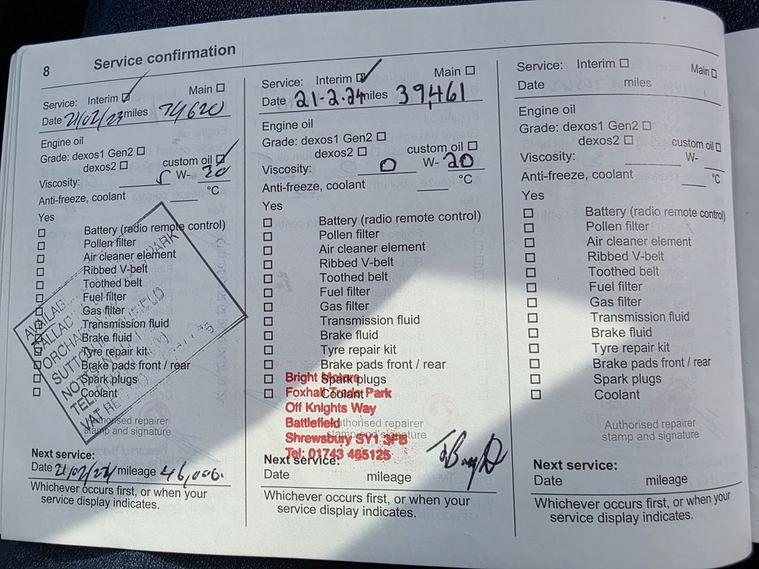 8 Service confirmation
Service: Interim ☑ Main ☐
Date 21/02/23 miles
Engine oil
Grade: dexos1 Gen2 ☐
dexos2 ☐ custom oil ☑
Viscosity: 5 W-
Anti-freeze, coolant °C
Yes
☐ Battery (radio remote control)
☐ Pollen filter
☐ Air cleaner element
☐ Ribbed V-belt
☐ Toothed belt
☐ Fuel filter
☐ Gas filter
☐ Transmission fluid
☐ Brake fluid
☐ Tyre repair kit
☐ Brake pads front / rear
☐ Spark plugs
☐ Coolant
Authorised repairer
stamp and signature
Next service:
Date 21/02/24 mileage 46,000.
Whichever occurs first, or when your
service display indicates.
Service: Interim ☑ Main ☐
Date 21-2-24 miles 39,461
Engine oil
Grade: dexos1 Gen2 ☐
dexos2 ☐ custom oil ☐
Viscosity: 0 W- 20
Anti-freeze, coolant °C
Yes
☐ Battery (radio remote control)
☐ Pollen filter
☐ Air cleaner element
☐ Ribbed V-belt
☐ Toothed belt
☐ Fuel filter
☐ Gas filter
☐ Transmission fluid
☐ Brake fluid
☐ Tyre repair kit
☐ Brake pads front / rear
☐ Spark plugs
☐ Coolant
Authorised repairer
stamp and signature
Bright Motors
Foxhall Trade Park
Off Knights Way
Battlefield
Shrewsbury SY1 3FB
Tel: 01743 465125
Next service:
Date mileage
Whichever occurs first, or when your
service display indicates.
Service: Interim ☐ Main ☐
Date miles
Engine oil
Grade: dexos1 Gen2 ☐
dexos2 ☐ custom oil ☐
Viscosity: W-
Anti-freeze, coolant °C
Yes
☐ Battery (radio remote control)
☐ Pollen filter
☐ Air cleaner element
☐ Ribbed V-belt
☐ Toothed belt
☐ Fuel filter
☐ Gas filter
☐ Transmission fluid
☐ Brake fluid
☐ Tyre repair kit
☐ Brake pads front / rear
☐ Spark plugs
☐ Coolant
Authorised repairer
stamp and signature
Next service:
Date mileage
Whichever occurs first, or when your
service display indicates.